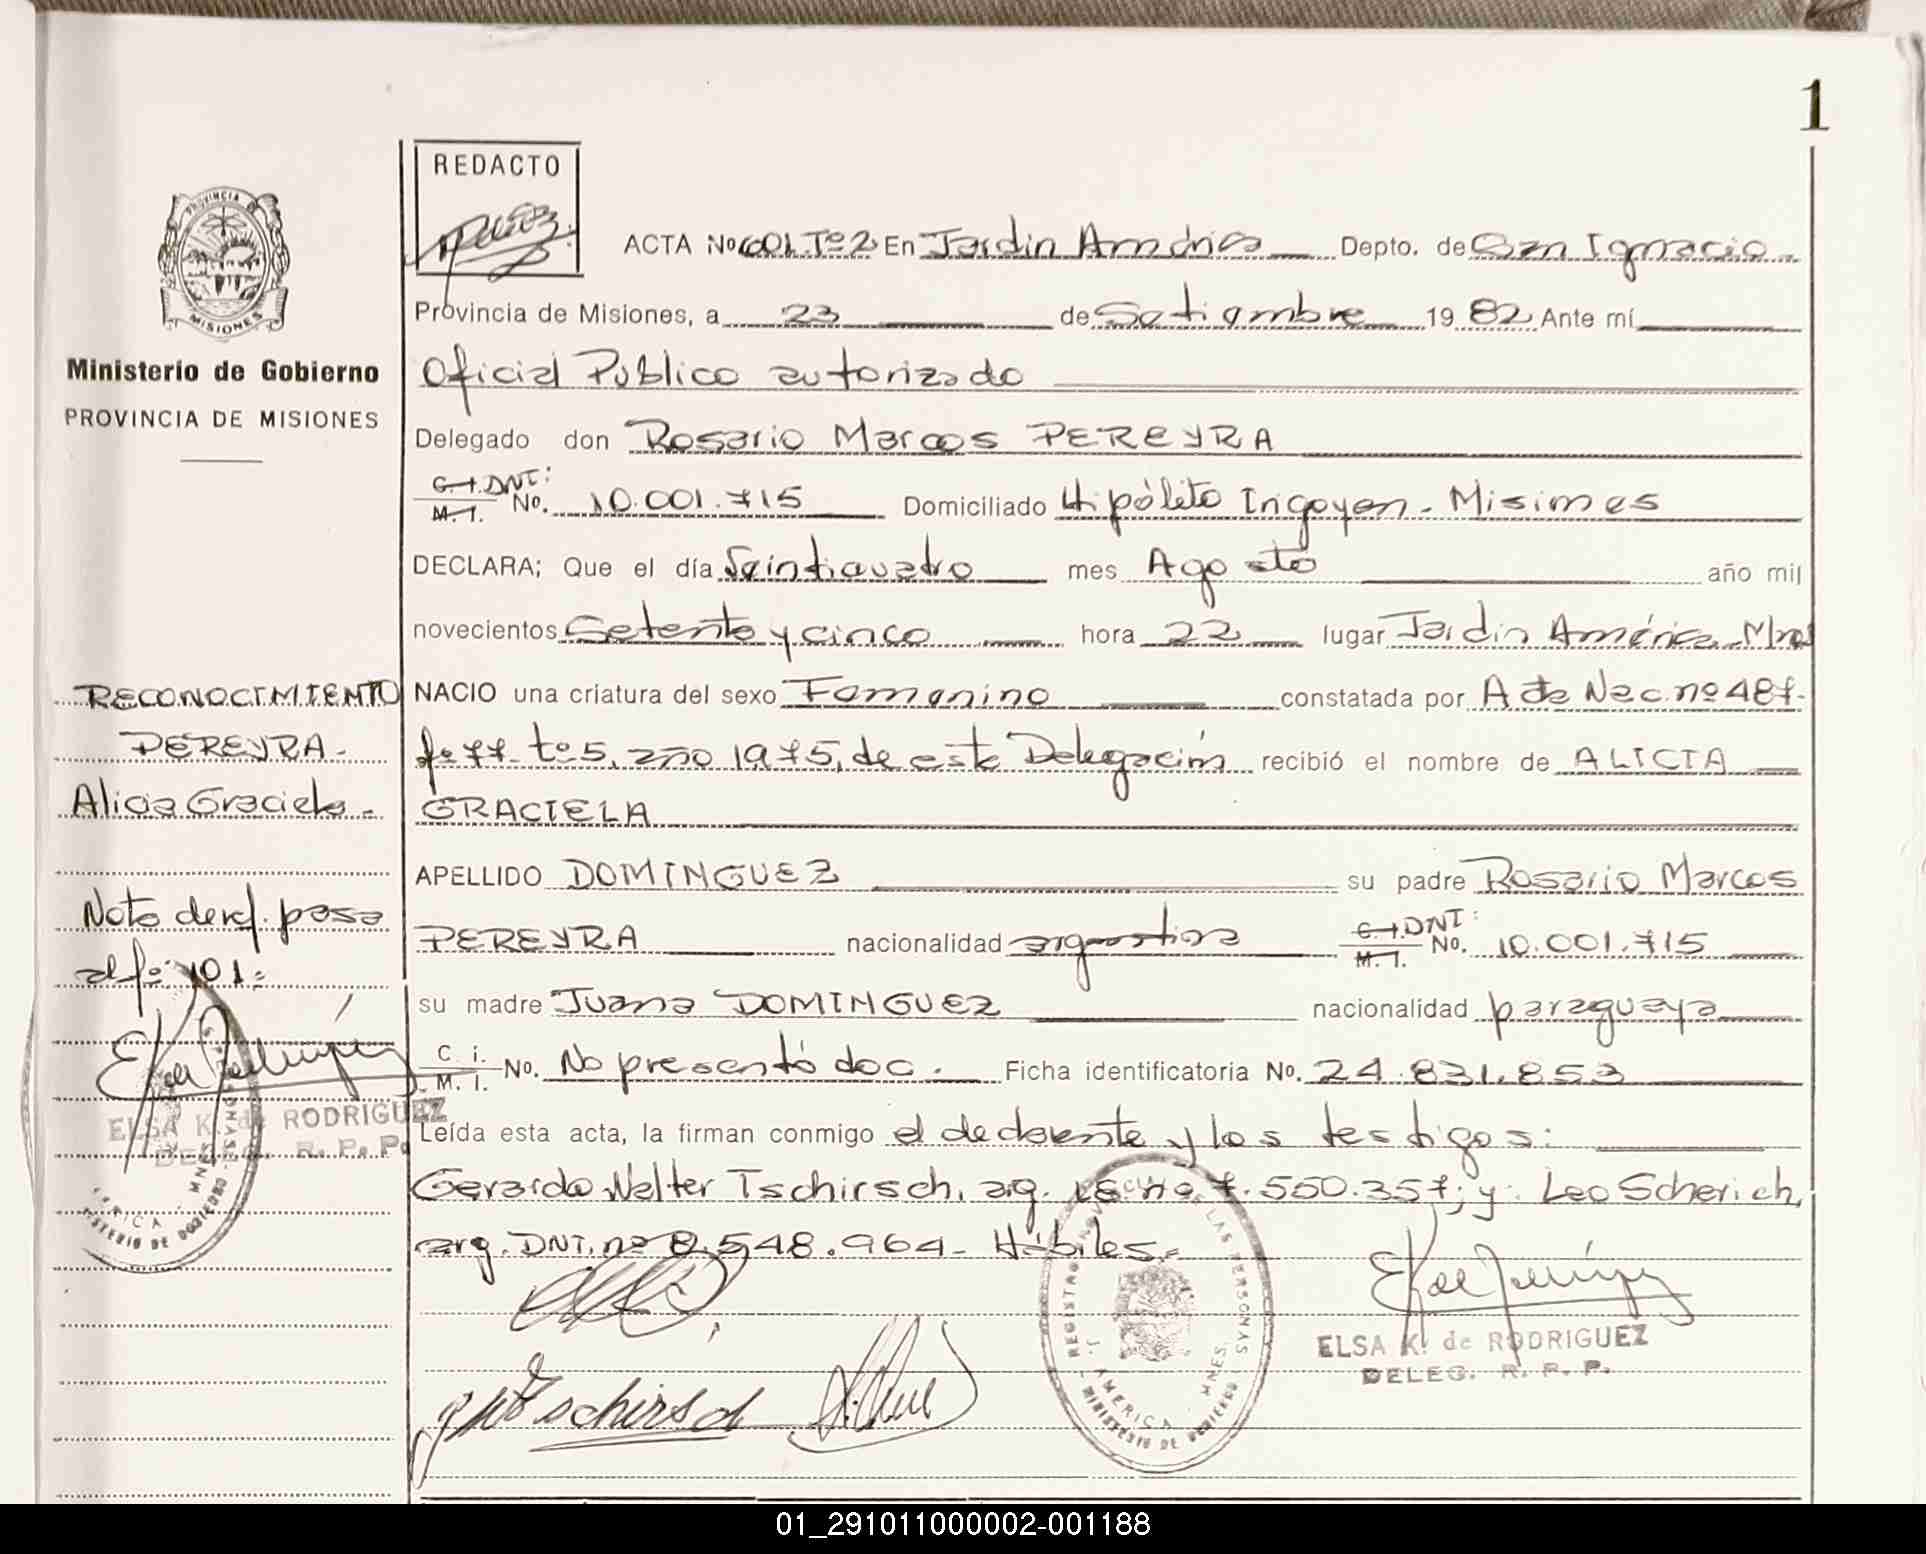 1
REDACTO
PROVINCIA DE
MISIONES
Ministerio de Gobierno
PROVINCIA DE MISIONES
ACTA No 601. Tº 2 En Jardín América Depto. de San Ignacio
Provincia de Misiones, a 23 de Setiembre 1982 Ante mí
Oficial Público autorizado
Delegado don Rosario Marcos PEREYRA
C.I. DNI:
M. I. No. 10.001.715 Domiciliado Hipólito Irigoyen - Misiones
DECLARA; Que el día Veinticuatro mes Agosto año mil
novecientos Setenta y cinco hora 22 lugar Jardín América - Mnes
RECONOCIMIENTO
PEREYRA -
Alicia Graciela -
Nota de ref. pasa
al fº 101:
ELSA K. de RODRIGUEZ
DELEG. R. P. P.
NACIO una criatura del sexo Femenino constatada por A de Nac. nº 487-
fº 77- tº 5, año 1975, de esta Delegación recibió el nombre de ALICIA
GRACIELA
APELLIDO DOMINGUEZ su padre Rosario Marcos
PEREYRA nacionalidad argentina C.I. DNI: M. I. No. 10.001.715
su madre Juana DOMINGUEZ nacionalidad paraguaya
C. I. M. I. No. No presentó doc. Ficha identificatoria No. 24.831.853
Leída esta acta, la firman conmigo el declarante y los testigos:
Gerardo Walter Tschirsch, arg. LE nº 7.550.357; y: Leo Scherich,
arg. DNI. nº 8.548.964- Hábiles.-
REGISTRO PROVINCIAL DE LAS PERSONAS
J. AMERICA - MNES.
MINISTERIO DE GOBIERNO
ELSA K. de RODRIGUEZ
DELEG. R. P. P.
01_291011000002-001188